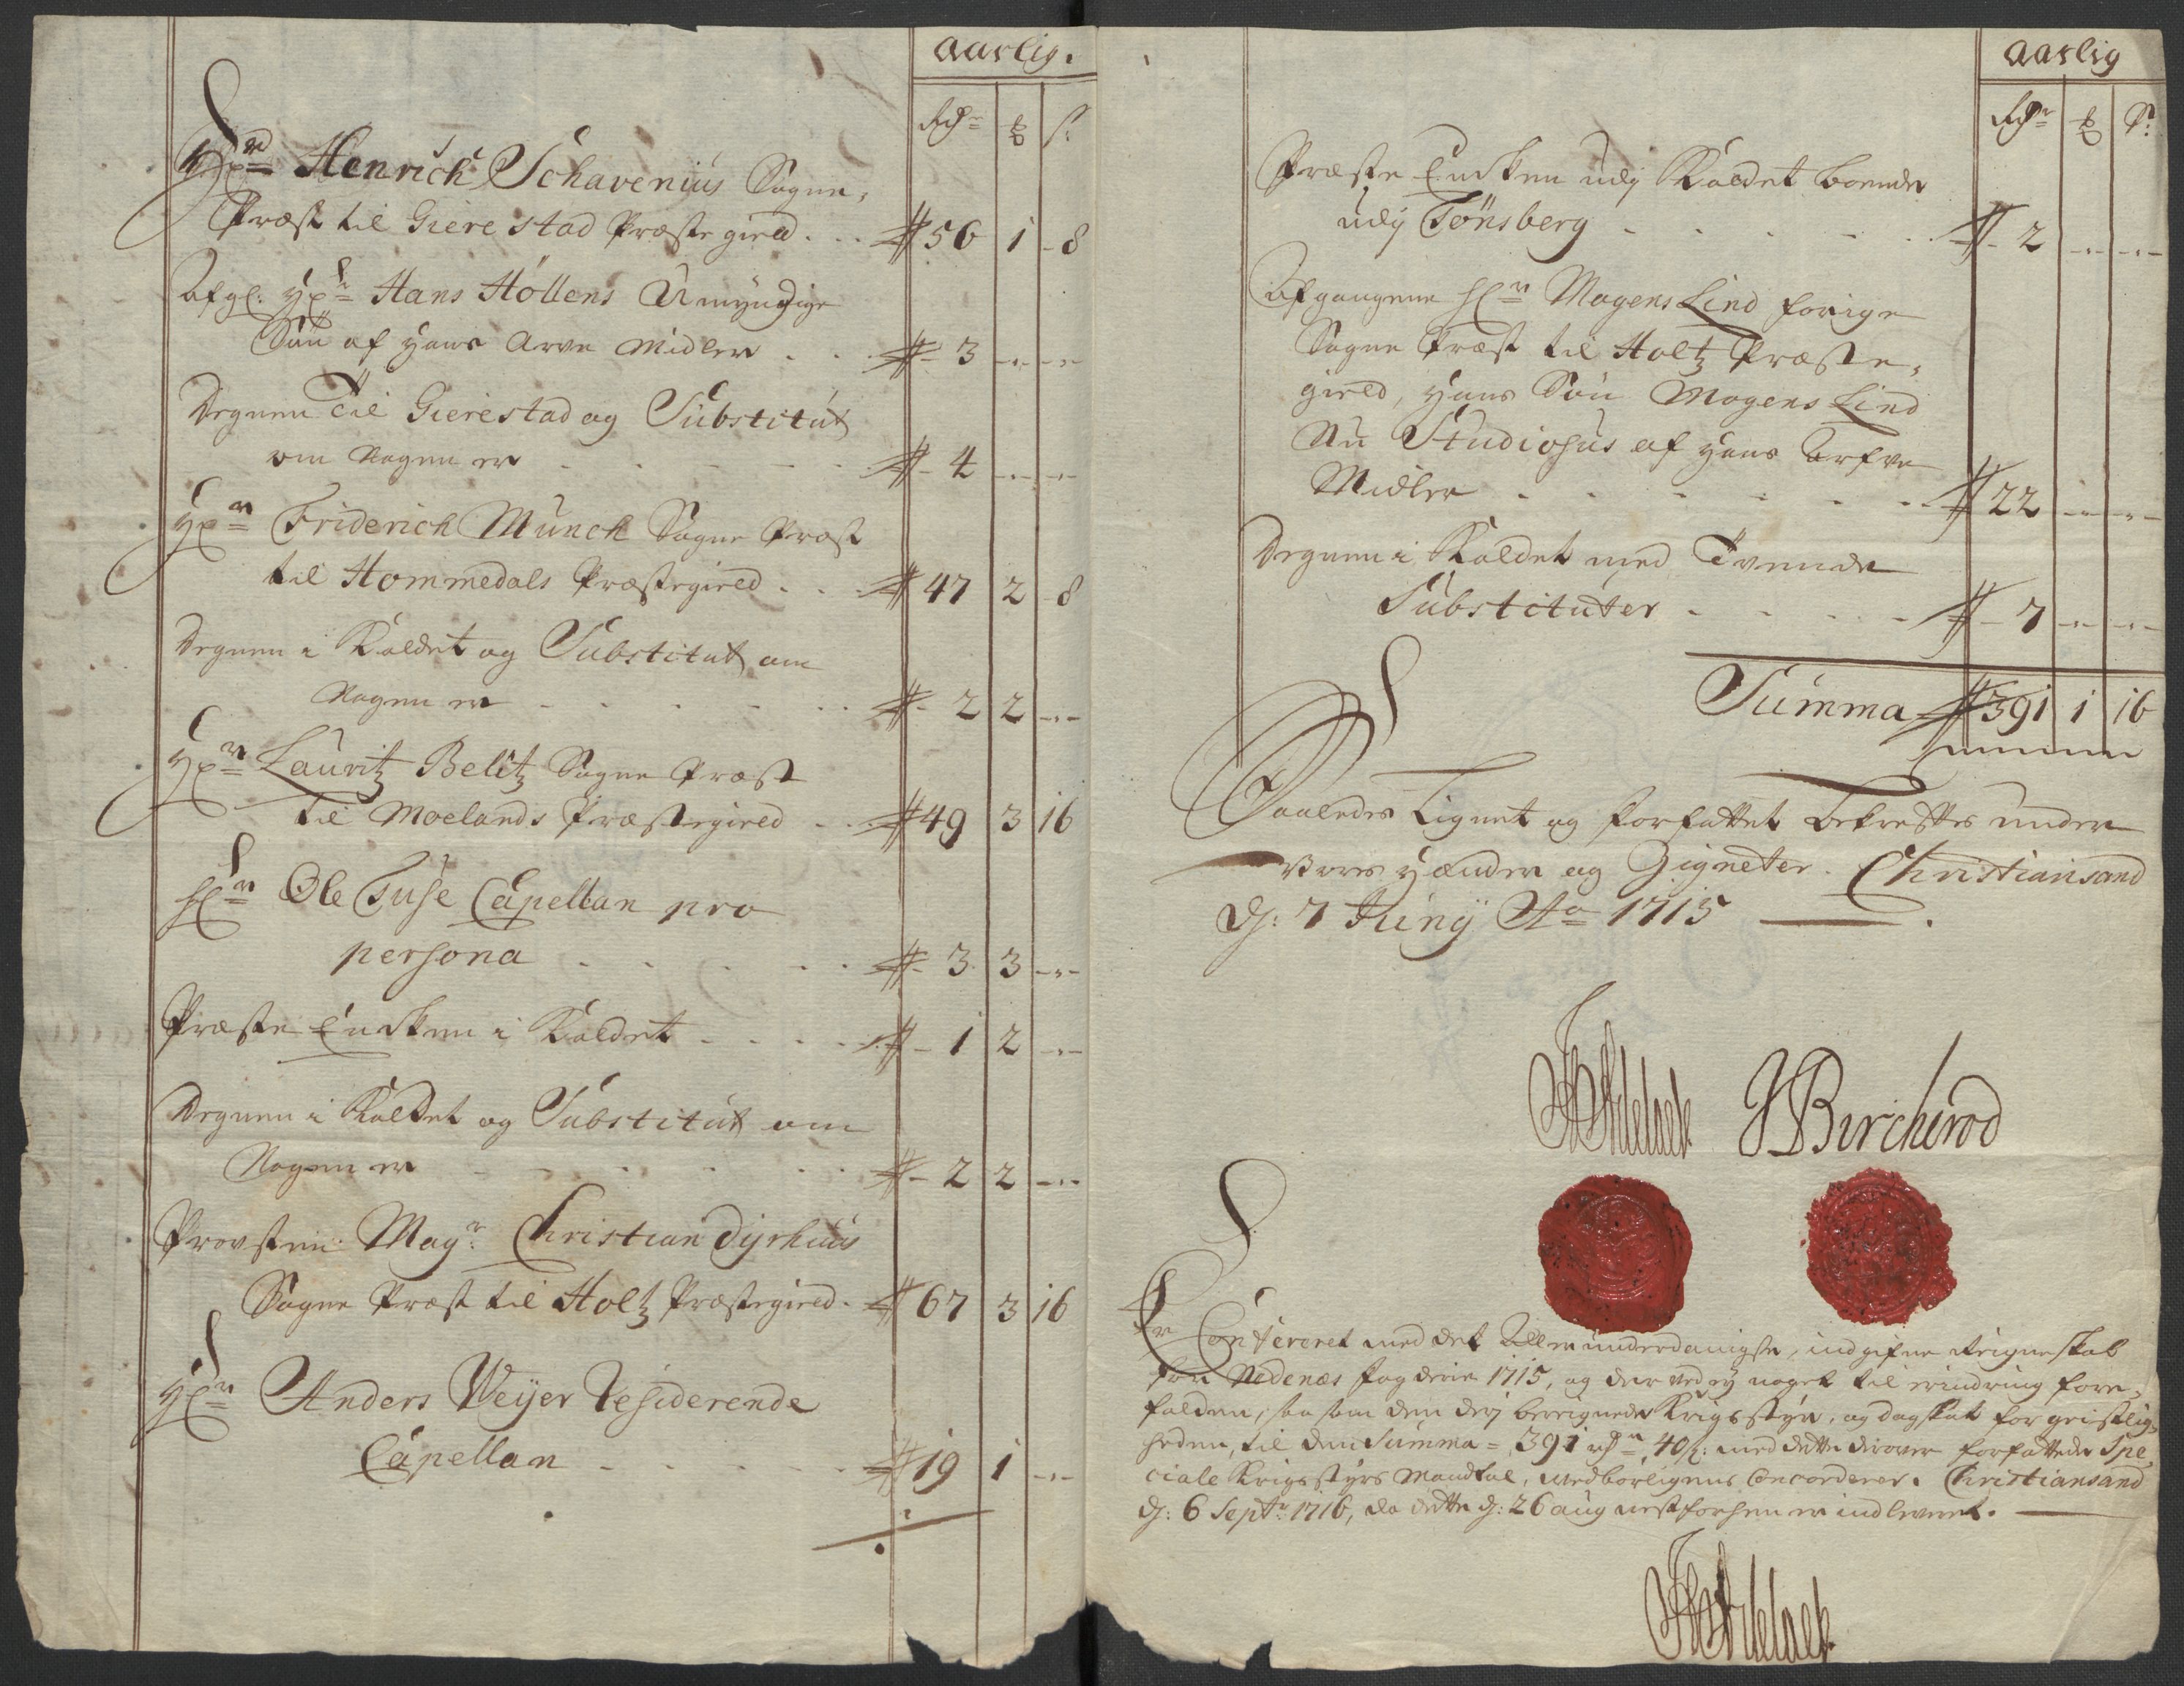 Aarlig.
Rdr ꝥ s:
Hr Henrich Schavenius Sogne-
Præst til Gierestad Præstegield . . # 56 1 8
Afgl: Hr Hans Höllens Umyndige
Sön af hans Arve Midler . . # 3 - -
Degnen Til Gierestad og Substitut
om Nogen er . . . # 4 - -
Hr Friderich Munch Sogne Præst
til Hommedals Præstegield . . # 47 2 8
Degnen i Kaldet og Substitut om
Nogen er . . . # 2 2 -
Hr Lauritz Belitz Sogne Præst
til Moelands Præstegield . . # 49 3 16
Hr Ole Tuse Capellan pro
persona . . . # 3 3 -
Præste Encken i Kaldet . . . # 1 2 -
Degnen i Kaldet og Substitut om
Nogen er . . . # 2 2 -
Provsten Magr: Christian Dyrhuus
Sogne Præst til Holtz Præstegield . # 67 3 16
Hr Anders Weyer Residerende
Capellan . . . # 19 1 -
Aarlig
Rdr ꝥ s:
Præste Encken udj Kaldet boende
udj Tönsberg . . . # 2 - -
Afgangene Hr Mogens Lind forige
Sogne Præst til Holtz Præste-
gield, hans Sön Mogens Lind
Nu Studiosus af hans Arfve
Midler . . . # 22 - -
Degnen i Kaldet med Tvende
Substituter . . . # 7 - -
Summa # 391 1 16
Saaledes Lignet og forfattet bekreftes under
Vores hænder og Zigneter. Christiansand
d: 7 Junij Ao 1715
J Bircherod
Er Confereret med det Allerunderdanigste, indgifne Reigneskab
for Nedenæs fogderie 1715, og derved ej noget til erindring fore-
falden, saa som den derj beregnede Krigsstyr, og dagskat for geistlig-
heden, til den Summa = 391 rdr 40 s: med dette derover forfattede Spe-
ciale Krigsstyrs Mandtal, vedbørligens Concorderer. Christiansand
d: 6 Septr: 1716, da dette d: 26 aug nestforhen er indleveret.